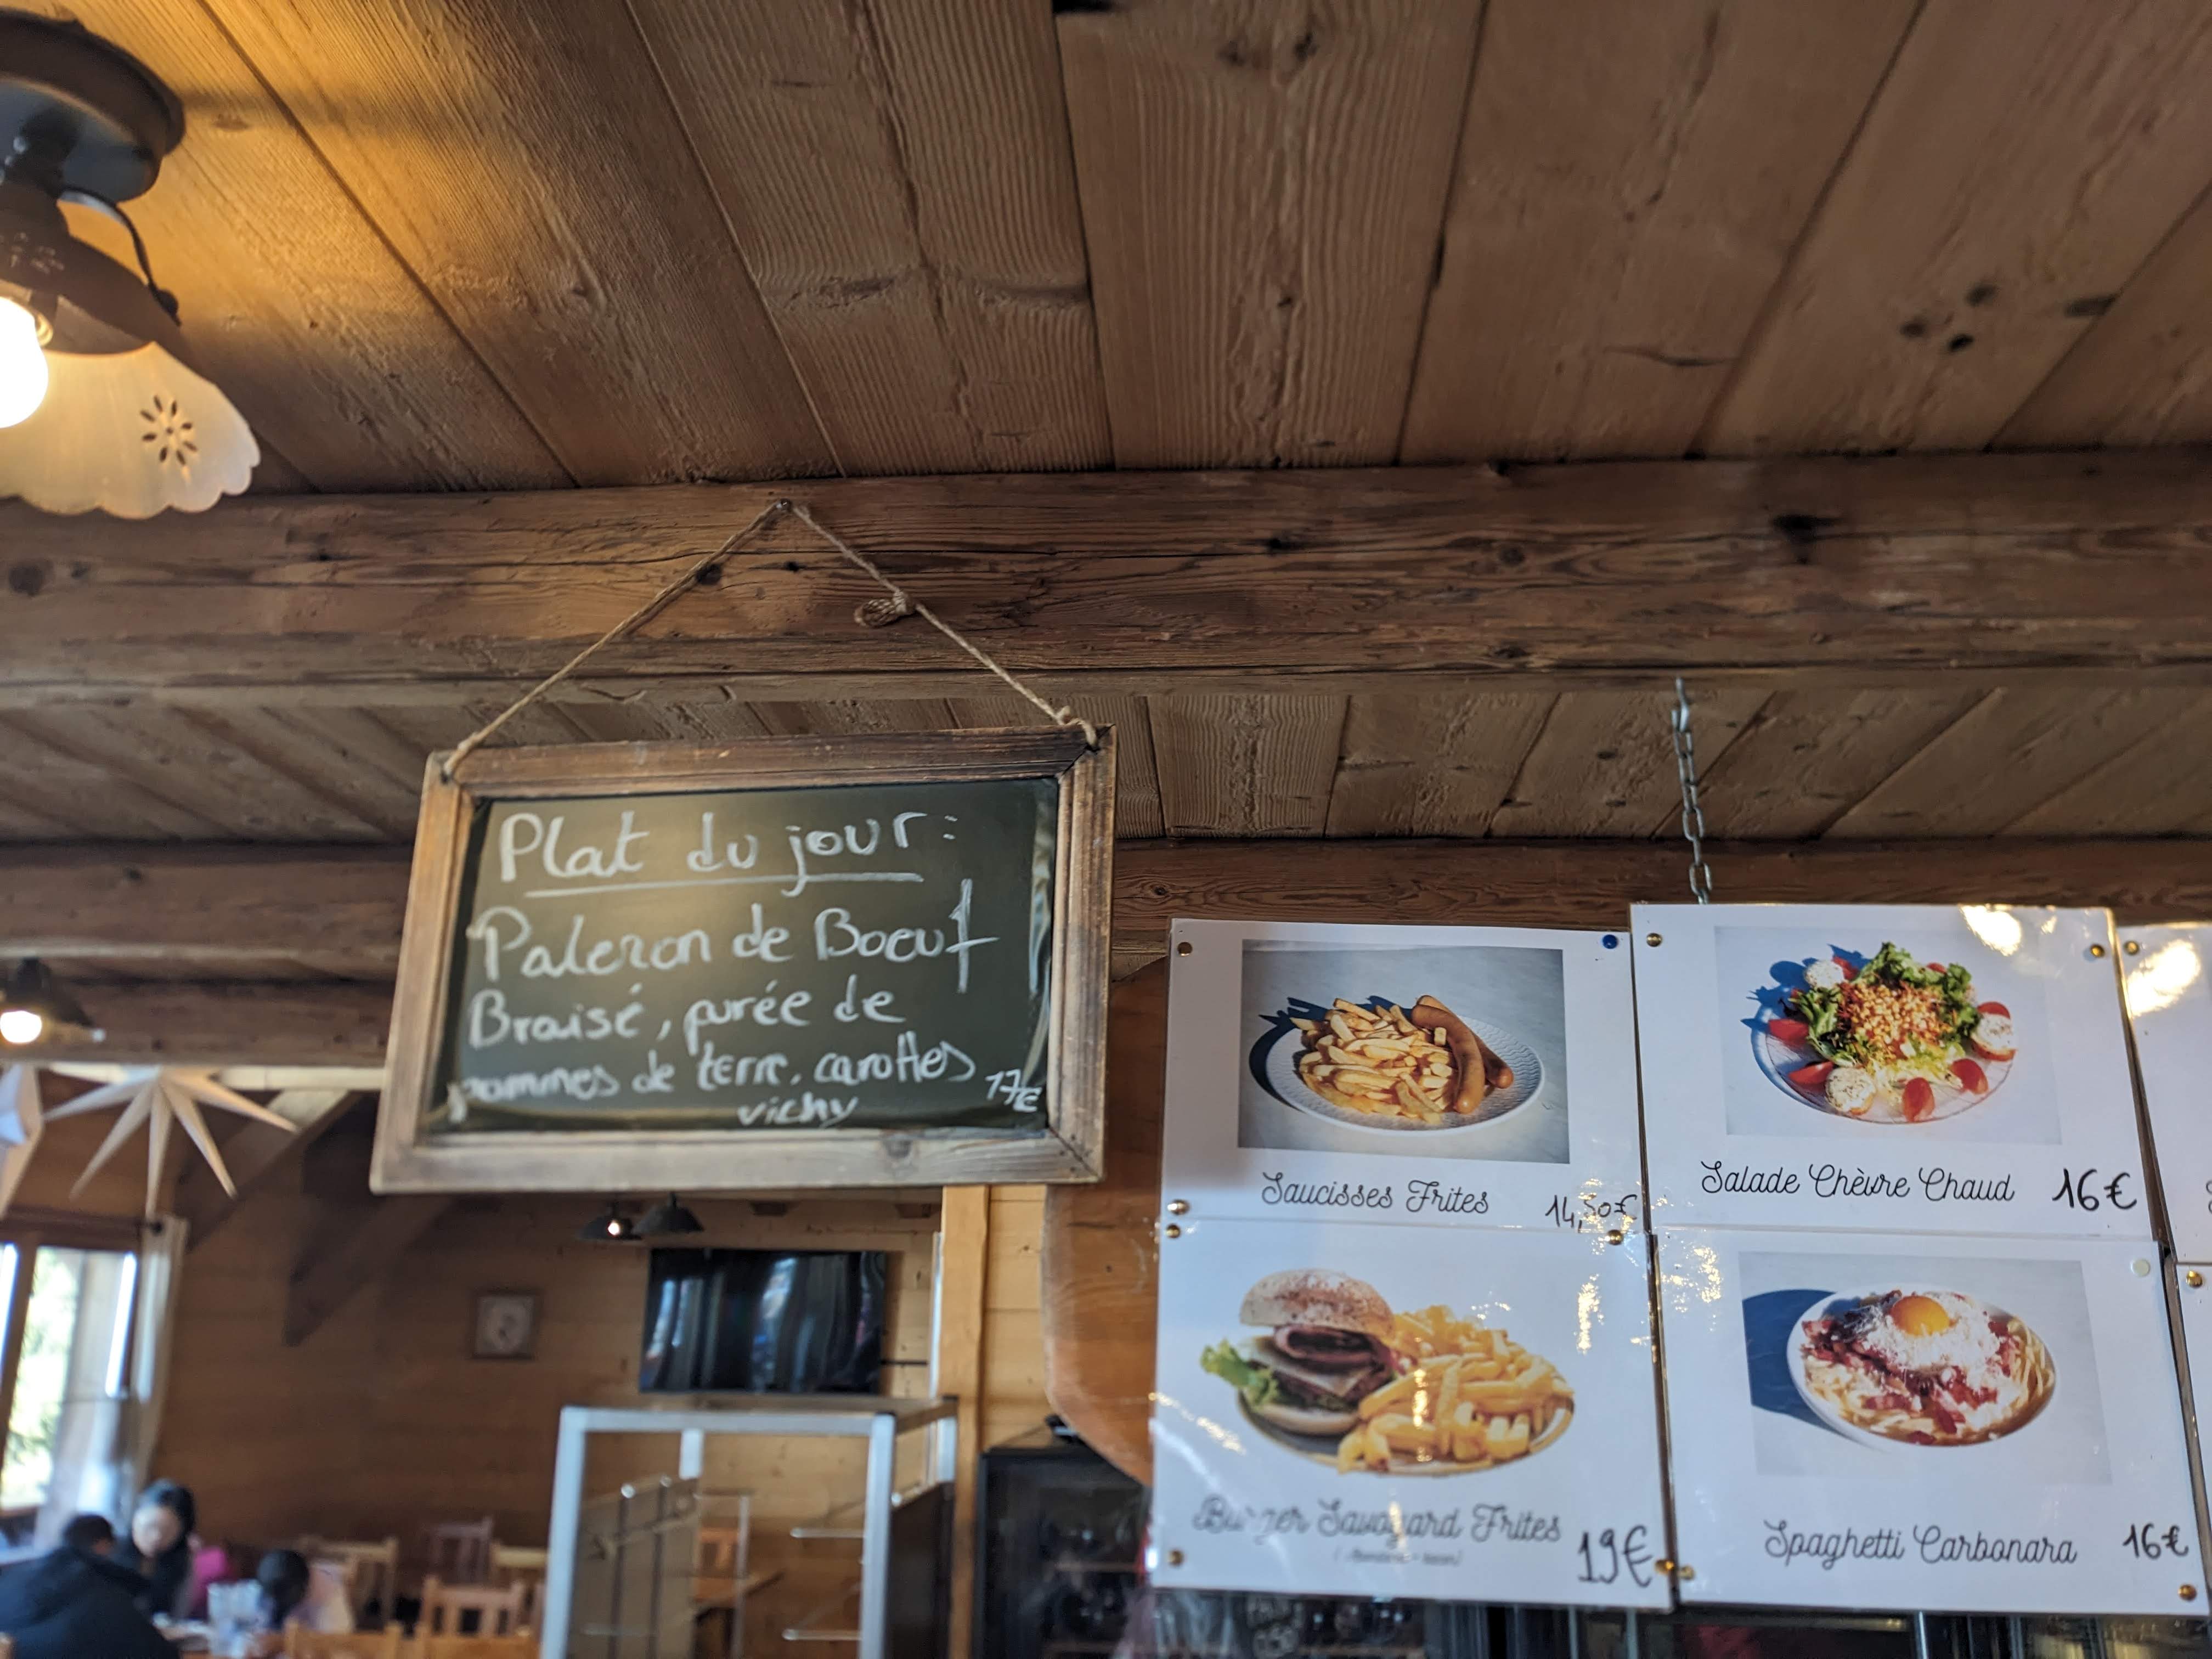 Plat du jour:
Paleron de Boeuf
Braisé, purée de
pommes de terre, carottes
vichy 17€
Saucisses Frites 14,50€
Salade Chèvre Chaud 16€
Burger Savoyard Frites 19€
Spaghetti Carbonara 16€